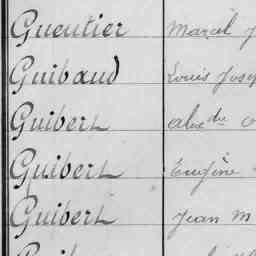 Gueutier Marcel
Guibaud Louis Josep
Guibert alex dre
Guibert Eugène
Guibert Jean M